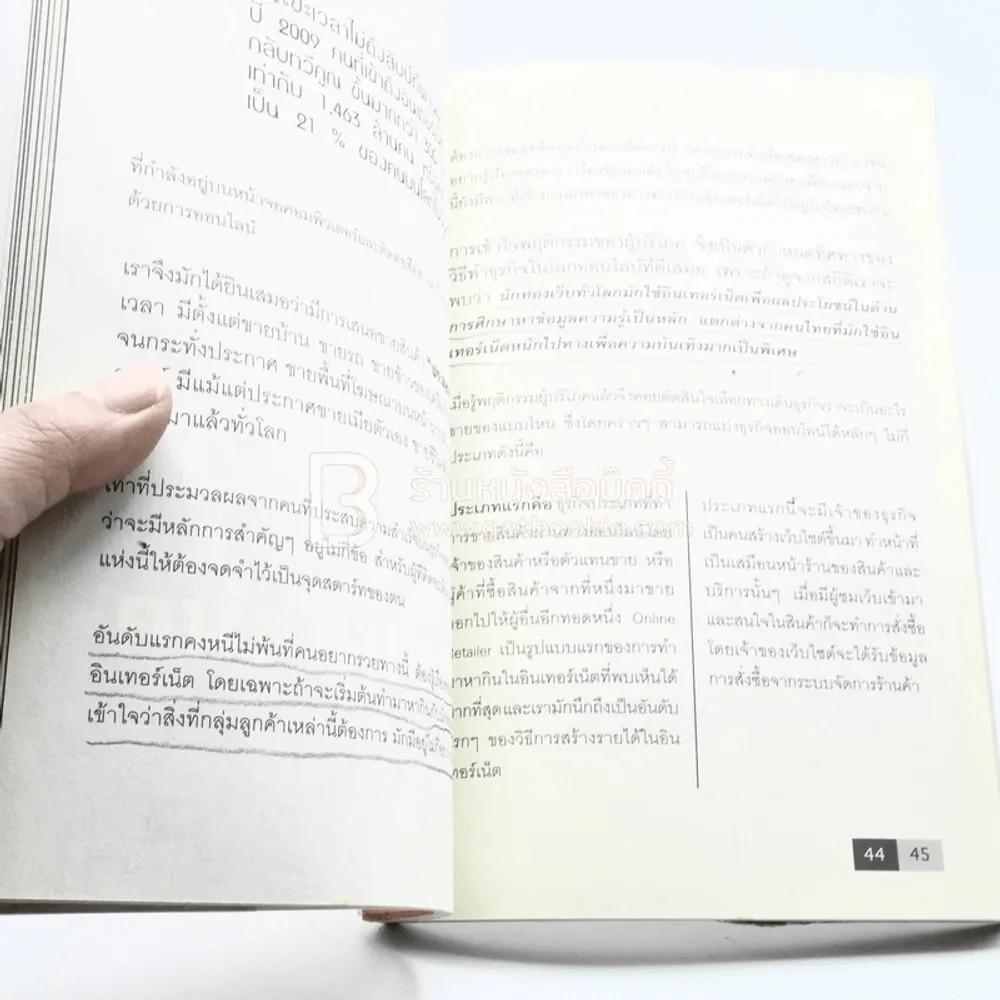 ปี 2009 คนที่เข้าถึงอินเตอร์เน็ต
กลับทวีคูณ ขึ้นมากกว่า
เท่ากับ 1,463 ล้านคน
เป็น 21 % ของคนบน
ที่กำลังอยู่บนหน้าจอคอมพิวเตอร์และติดต่อสื่อสาร
ด้วยการออนไลน์
เราจึงมักได้ยินเสมอว่ามีการเสนอขายสินค้า
เวลา มีตั้งแต่ขายบ้าน ขายรถ ขายข้าวของ
จนกระทั่งประกาศ ขายพื้นที่โฆษณาบนหน้าผาก
มีแม้แต่ประกาศขายเมียตัวเอง
มาแล้วทั่วโลก
เท่าที่ประมวลผลจากคนที่ประสบความสำเร็จ
ว่าจะมีหลักการสำคัญๆ อยู่ไม่กี่ข้อ สำหรับผู้ที่
แห่งนี้ให้ต้องจดจำไว้เป็นจุดสตาร์ทของตน
อันดับแรกคงหนีไม่พ้นที่คนอยากรวยทางนี้ ต้อง
อินเทอร์เน็ต โดยเฉพาะถ้าจะเริ่มต้นทำมาหากิน
เข้าใจว่าสิ่งที่กลุ่มลูกค้าเหล่านี้ต้องการ มักมีอยู่ไม่กี่
การเข้าใจพฤติกรรมของผู้บริโภค จึงเป็นตัวกำหนดทิศทางของ
วิธีทำธุรกิจในโลกออนไลน์ที่ดีเสมอ เพราะถ้าดูจากสถิติเราจะ
พบว่า นักท่องเว็บทั่วโลกมักใช้อินเทอร์เน็ตเพื่อผลประโยชน์ในด้าน
การศึกษาหาข้อมูลความรู้เป็นหลัก แตกต่างจากคนไทยที่มักใช้อิน
เทอร์เน็ตหนักไปทางเพื่อความบันเทิงมากเป็นพิเศษ
เมื่อรู้พฤติกรรมผู้บริโภคแล้วจึงค่อยตัดสินใจเลือกทางเดินธุรกิจว่าจะเป็นอะไร
ขายของแบบไหน ซึ่งโดยคร่าวๆ สามารถแบ่งธุรกิจออนไลน์ได้หลักๆ ไม่กี่
ประเภทดังนี้คือ
ร้านหนังสือบุ๊คกี้
www.getbookie.com
ประเภทแรกคือ ธุรกิจประเภทที่ทำ
การขายสินค้าผ่านทางออนไลน์โดย
เจ้าของสินค้าหรือตัวแทนขาย หรือ
ผู้ค้าที่ซื้อสินค้าจากที่หนึ่งมาขาย
ออกไปให้ผู้อื่นอีกทอดหนึ่ง Online
Retailer เป็นรูปแบบแรกของการทำ
มาหากินในอินเทอร์เน็ตที่พบเห็นได้
มากที่สุดและเรามักนึกถึงเป็นอันดับ
แรกๆ ของวิธีการสร้างรายได้ในอิน
เทอร์เน็ต
ประเภทแรกนี้จะมีเจ้าของธุรกิจ
เป็นคนสร้างเว็บไซต์ขึ้นมา ทำหน้าที่
เป็นเสมือนหน้าร้านของสินค้าและ
บริการนั้นๆ เมื่อมีผู้ชมเว็บเข้ามา
และสนใจในสินค้าก็จะทำการสั่งซื้อ
โดยเจ้าของเว็บไซต์จะได้รับข้อมูล
การสั่งซื้อจากระบบจัดการร้านค้า
44 45